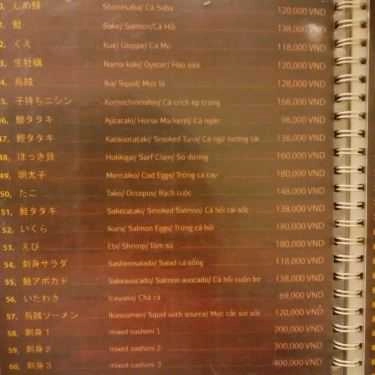 しめ鯖 Shimesaba/ Cá Saba 120,000 VND
鮭 Sake/ Salmon/Cá Hồi 138,000 VND
2. くえ Kue/ Cá Mú 118,000 VND
3. 生牡蠣 Nama kaki/ Oyster/ Hàu sữa 120,000 VND
4. 烏賊 Ika/ Squid/ Mực lá 128,000 VND
5. 子持ちニシン Komochinishin/ Cá trích ép trứng 168,000 VND
46. 鯵タタキ Ajitataki/ Horse Mackerel/ Cá ngân 98,000 VND
47. 鰹タタキ Katsuotataki/ Smoked Tuna/ Cá ngừ nướng tái 138,000 VND
48. ほっき貝 Hokkigai/ Surf Clam/ Sò đương 160,000 VND
49. 明太子 Mentaiko/ Cod Eggs/ Trứng cá cay 180,000 VND
50. たこ Tako/ Octopus/ Bạch tuộc 148,000 VND
51. 鮭タタキ Saketataki/ Smoked Salmon/ Cá hồi tái sốc 138,000 VND
52. いくら Ikura/ Salmon Eggs/ Trứng cá hồi 180,000 VND
53. えび Ebi/ Shrimp/ Tôm sú 180,000 VND
54. 刺身サラダ Sashimisalada/ Salad cá sống 118,000 VND
55. 鮭アボカド Sakeavocado/ Salmon avocado/ Cá hồi cuốn bơ 138,000 VND
56. いたわさ Itawasa/ Chả cá 69,000 VND
57. 烏賊ソーメン Ikasoumen/ Squid with source/ Mực cắt sợi sốt 120,000 VND
58. 刺身1 mixed sashimi 1 200,000 VND
59. 刺身2 mixed sashimi 2 300,000 VND
60. 刺身3 mixed sashimi 3 400,000 VND